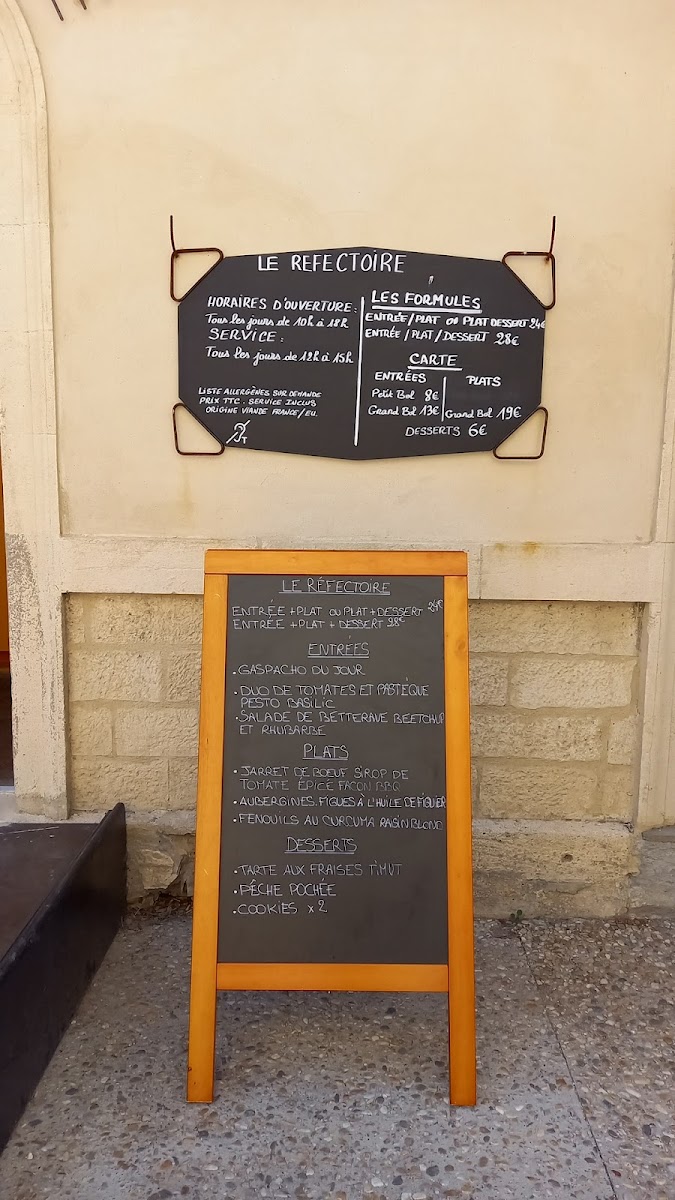 LE REFECTOIRE
HORAIRES D'OUVERTURE:
Tous les jours de 10h à 18h
SERVICE:
Tous les jours de 12h à 15h
LISTE ALLERGÈNES SUR DEMANDE
PRIX TTC. SERVICE INCLUS
ORIGINE VIANDE FRANCE/EU.
T
LES FORMULES
ENTRÉE/PLAT OU PLAT DESSERT 24€
ENTRÉE/PLAT/DESSERT 28€
CARTE
ENTRÉES
Petit Bol 8€
Grand Bol 13€
PLATS
Grand Bol 19€
DESSERTS 6€
LE RÉFECTOIRE
ENTRÉE +PLAT OU PLAT+DESSERT 24€
ENTRÉE +PLAT + DESSERT 28€
ENTRÉES
• GASPACHO DU JOUR
• DUO DE TOMATES ET PASTÈQUE
PESTO BASILIC
• SALADE DE BETTERAVE BEETCHUP
ET RHUBARBE
PLATS
• JARRET DE BOEUF SIROP DE
TOMATE ÉPICÉ FACON BBQ
• AUBERGINES. FIGUES À L'HUILE DE FIGUIER
• FENOUILS AU CURCUMA RAISIN BLOND
DESSERTS
• TARTE AUX FRAISES TIMUT
• PÊCHE POCHÉE
• COOKIES x2